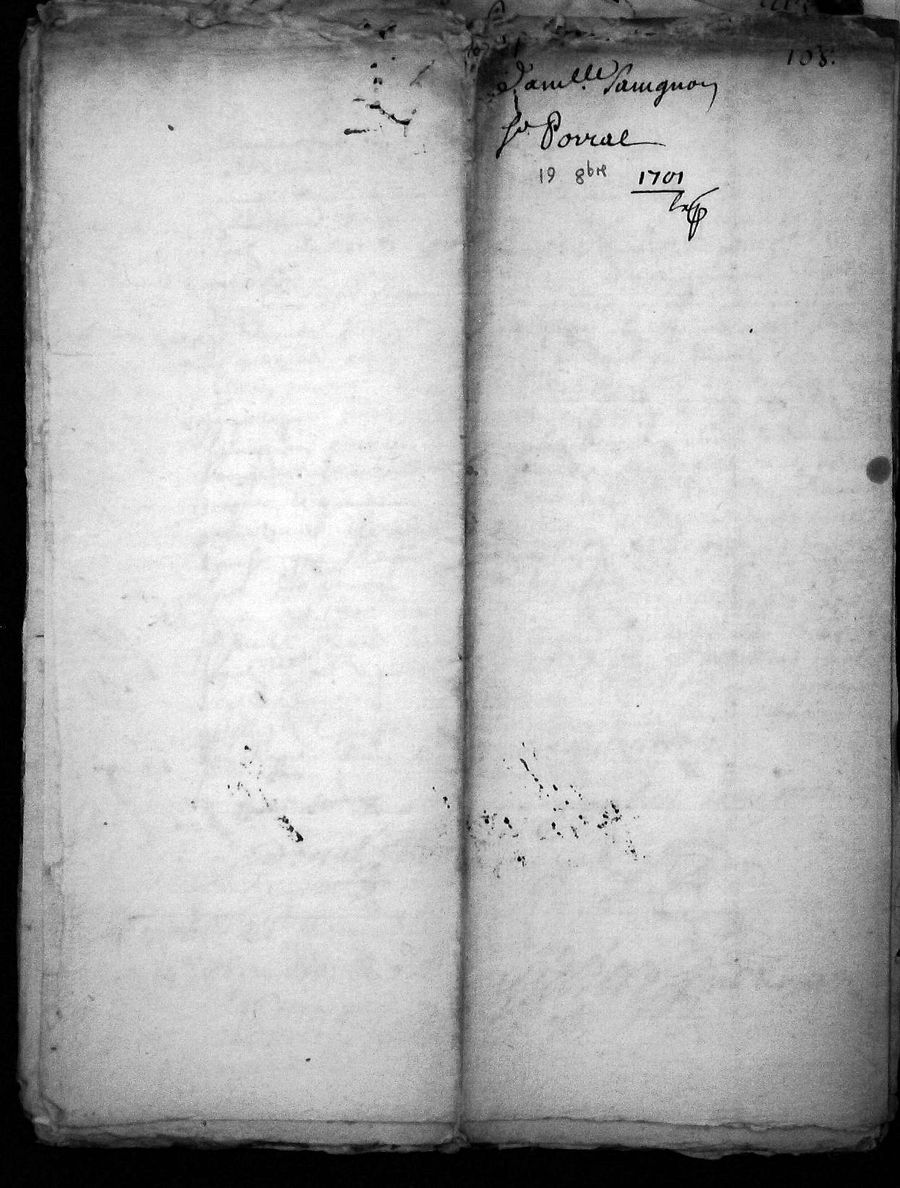 108.
famille Savignon
Sr Porral
19 8bre 1701